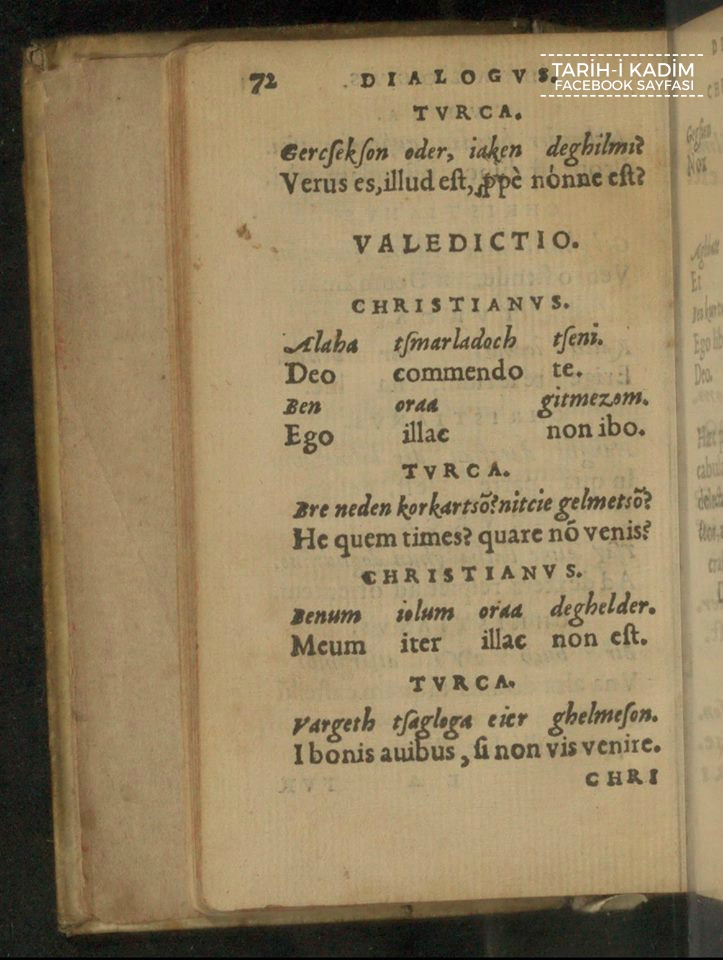 72 DIALOGVS.
TARİH-İ KADİM
FACEBOOK SAYFASI
TVRCA.
Gercſekſon oder, iaken deghilmi?
Verus es, illud eſt, ꝓpè nónne eſt?
VALEDICTIO.
CHRISTIANVS.
Alaha tſmarladoch tſeni.
Deo commendo te.
Ben oraa gitmezom.
Ego illac non ibo.
TVRCA.
Bre neden korkartsõ? nitcie gelmetsõ?
He quem times? quare nõ venis?
CHRISTIANVS.
Benum iolum oraa deghelder.
Meum iter illac non eſt.
TVRCA.
Vargeth tſagloga eier ghelmeſon.
I bonis auibus, ſi non vis venire.
CHRI